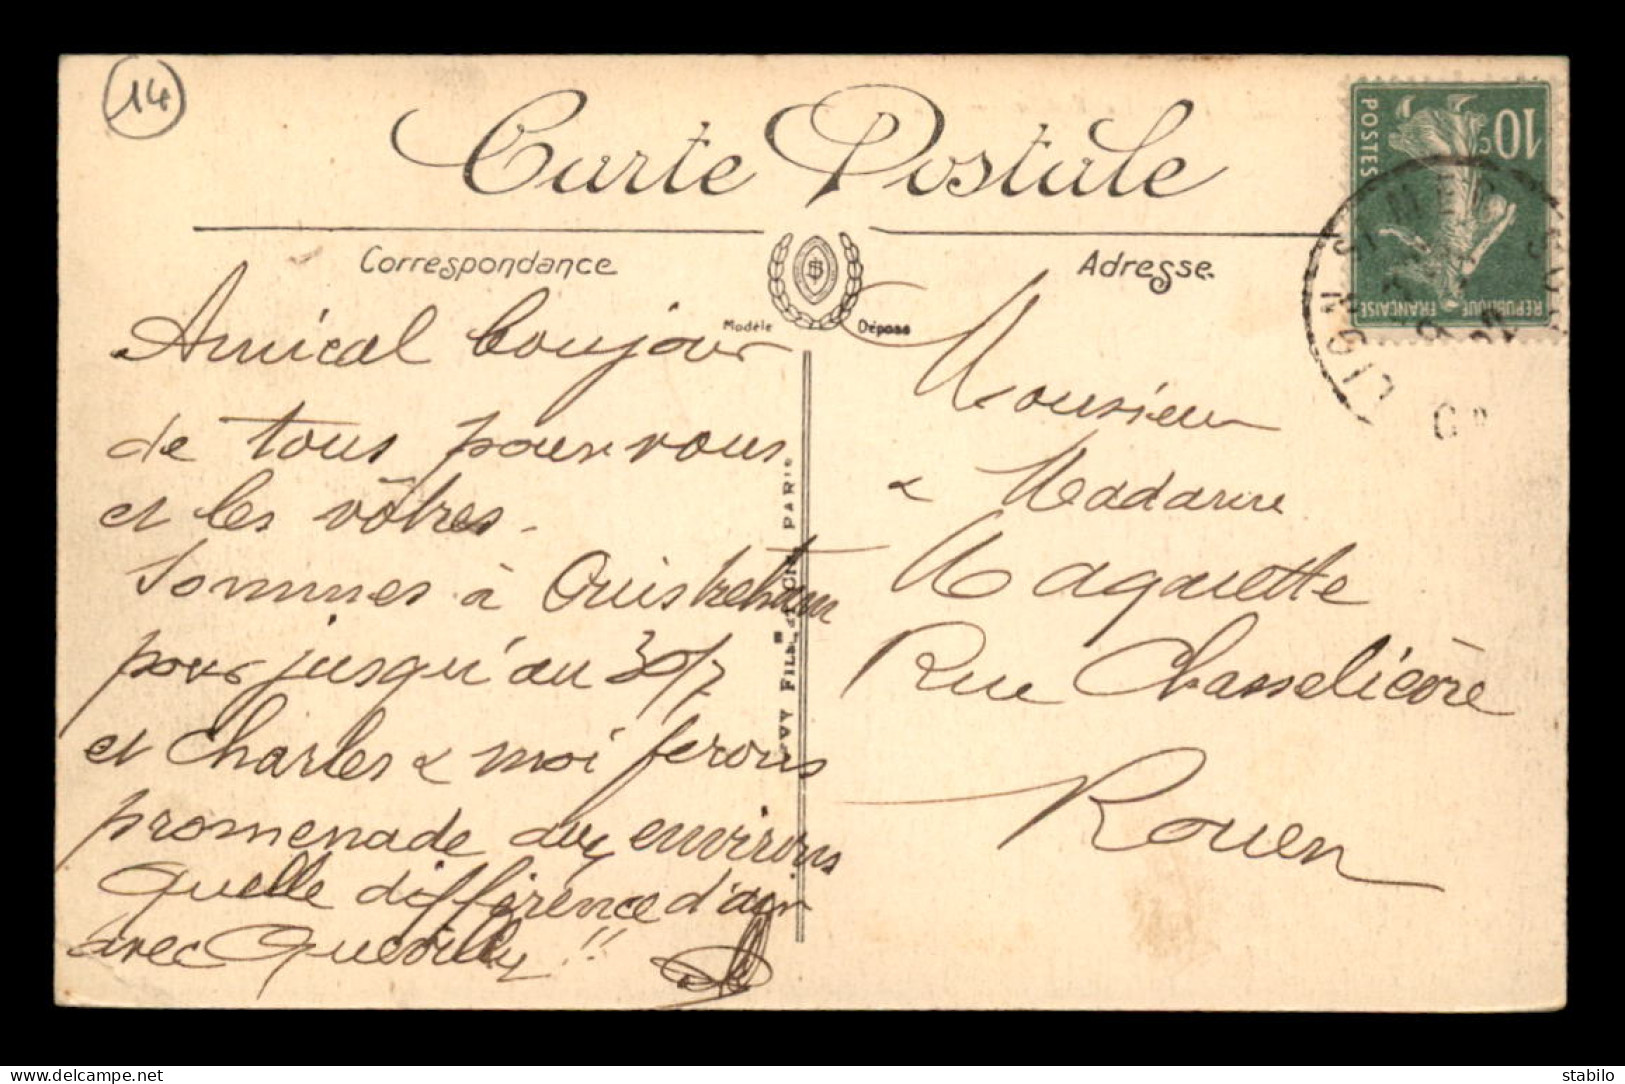 14
Carte Postale
Correspondance
Adresse
Modèle Déposé
LEVY FILS et Cie, PARIS
10c
POSTES
RÉPUBLIQUE FRANÇAISE
LION S MER
Amical boujour
de tous pour vous
et les vôtres.
Sommes à Ouistreham
pour jusqu'au 30/7
et Charles & moi ferons
promenade aux environs
Quelle différence d'air
avec Quevilly !!
Monsieur
& Madame
Maquette
Rue Chasselièvre
Rouen
delcampe.net
stabilo